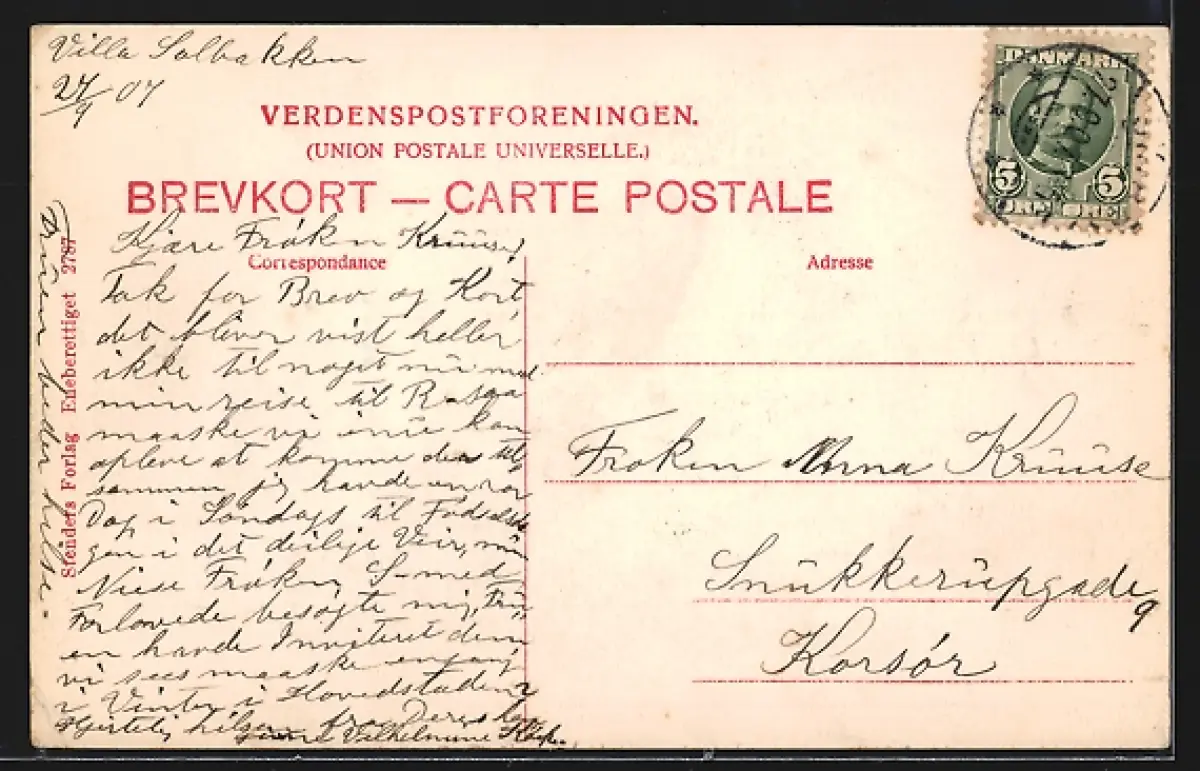 Villa Solbakken
27/9 07
VERDENSPOSTFORENINGEN.
(UNION POSTALE UNIVERSELLE.)
BREVKORT — CARTE POSTALE
DANMARK
5 5
ØRE
Correspondance
Adresse
Kjære Frøken Kruuse!
Tak for Brev og Kort
det bliver vist heller
ikke til noget nu med
min reise til
maaske vi enu kan
opleve at komme der til
sammen jeg havde en rar
Dag i Søndags til Fødselsda
gen i det deilige Veir, min
Niese Frøken S– med
Forlovede besøgte mig, Fru
en havde Inviteret dem
vi sees maaske engang
i Vinter i Hovedstaden
Hjertelig hilsen fra Deres
Vilhelmine
Fruen beder hilse.
Stenders Forlag Eneberettiget 2787
Frøken Anna Kruuse
Snukkerupgade
9
Korsør